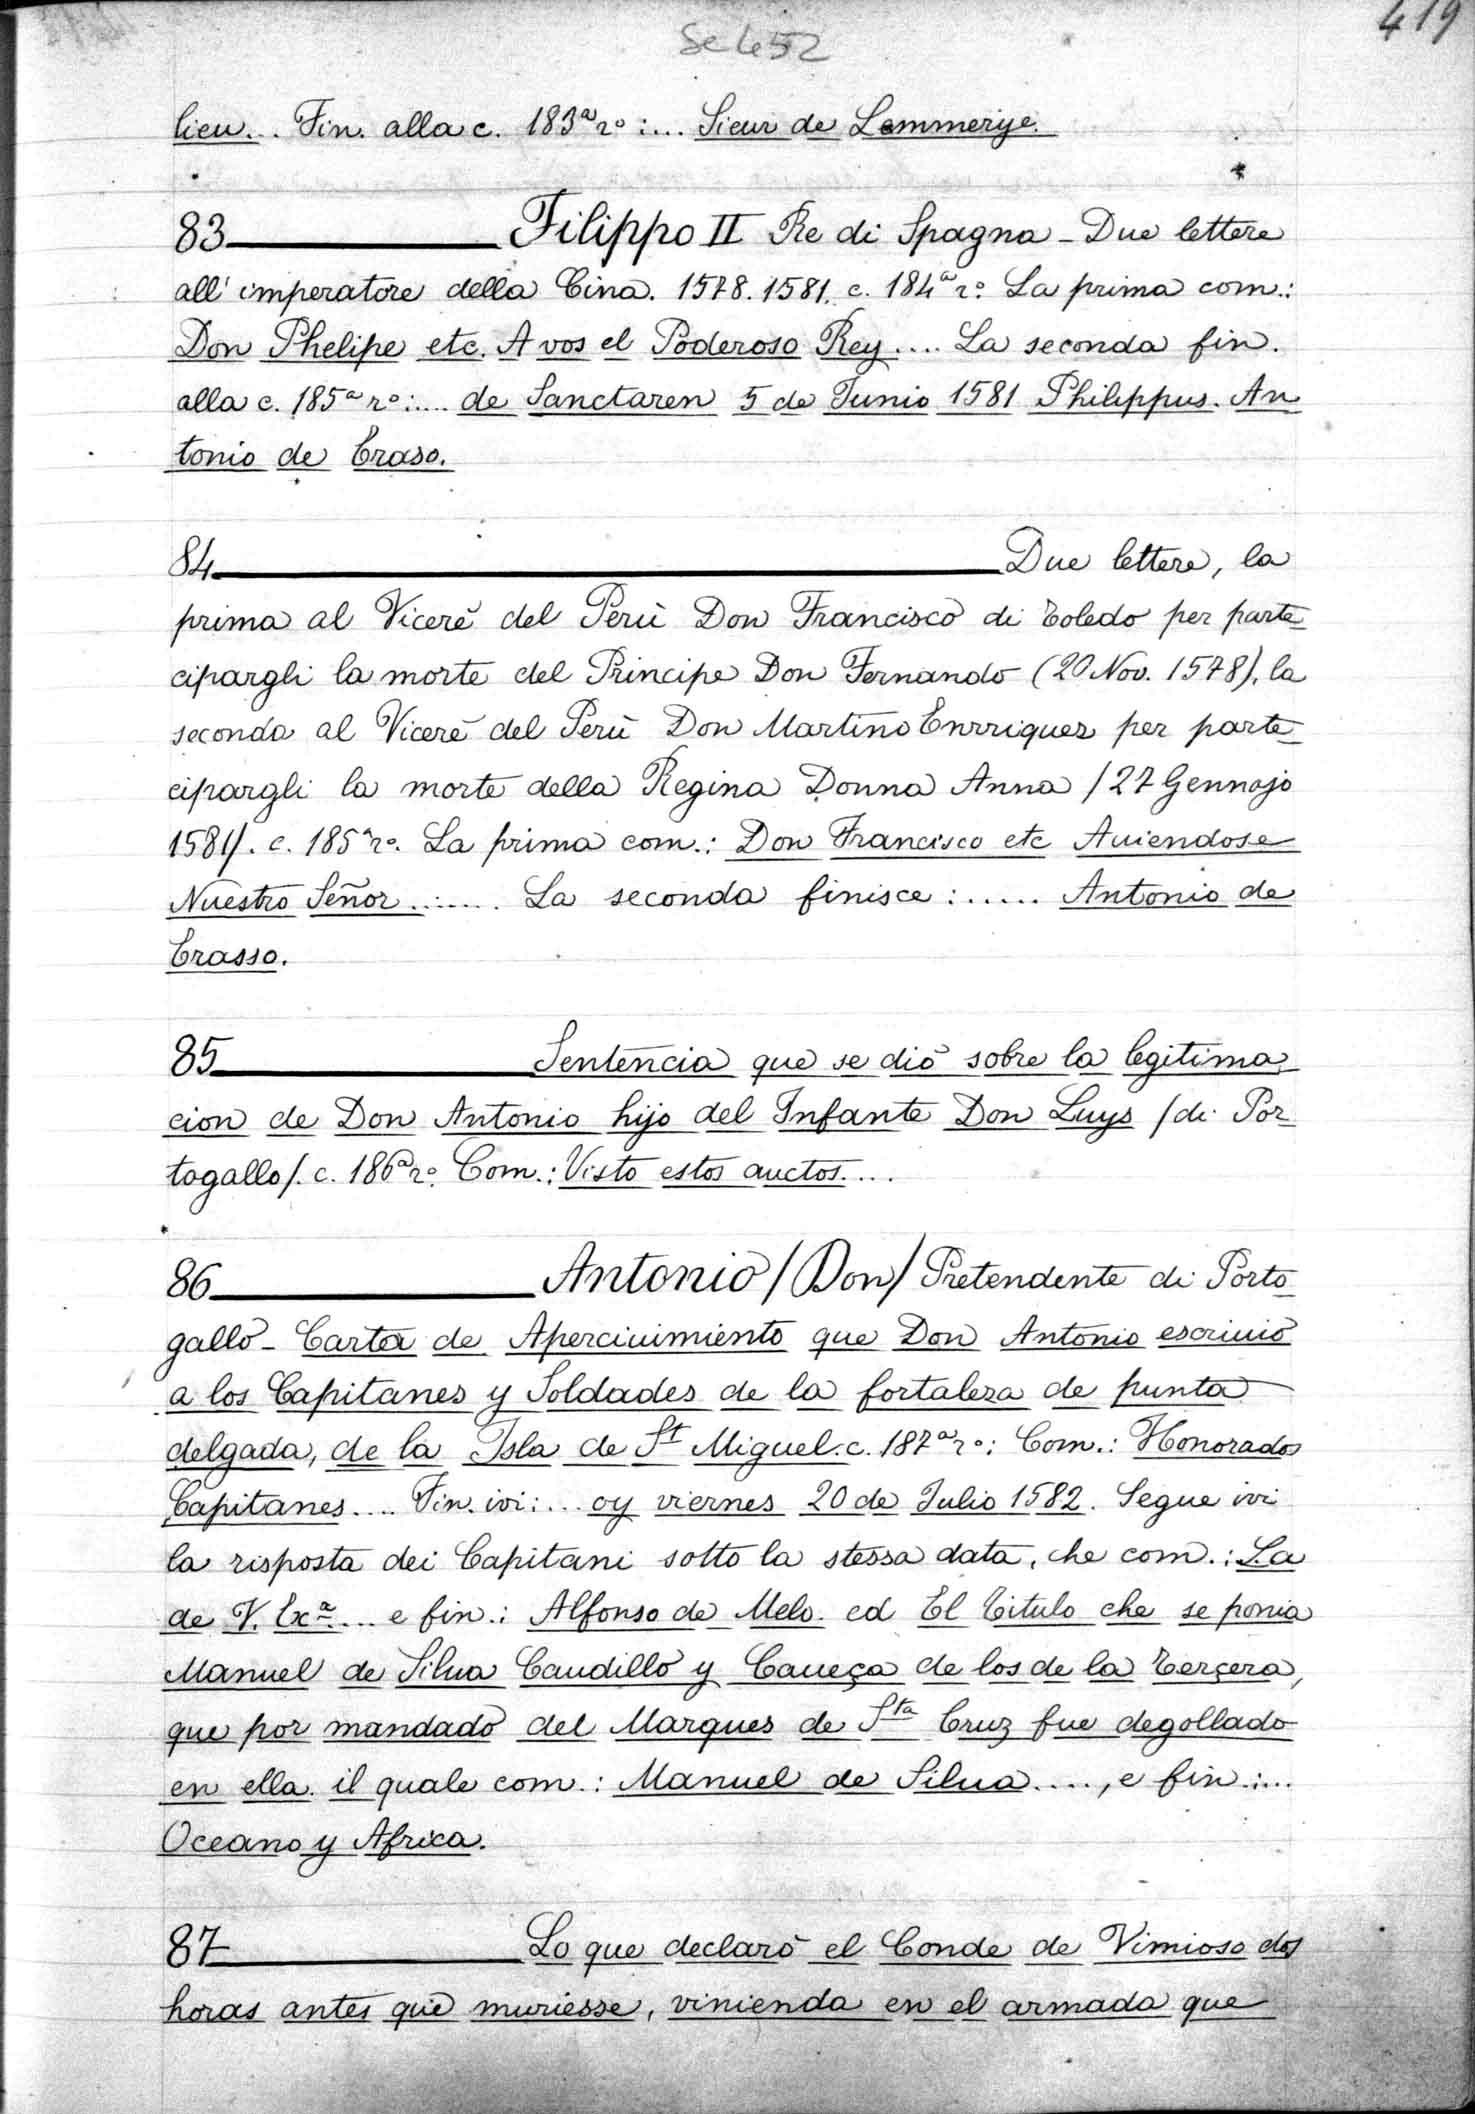 Se 452
419
lieu... Fin. alla c. 183ª rº:... Sieur de Lommerije.
83 Filippo II Re di Spagna - Due lettere
all' imperatore della Cina. 1578. 1581. c. 184ª rº: La prima com.:
Don Phelipe etc. A vos el Poderoso Rey.... La seconda fin.
alla c. 185ª rº:.... de Sanctaren 5 de Junio 1581 Philippus. An
tonio de Eraso.
84 Due lettere, la
prima al Vicerè del Perù Don Francisco di Toledo per parte-
cipargli la morte del Principe Don Fernando (20 Nov. 1578), la
seconda al Vicerè del Perù Don Martino Enrriquez per parte-
cipargli la morte della Regina Donna Anna /27 Gennajo
1581/. c. 185ª rº. La prima com.: Don Francisco etc Auiendose
Nuestro Señor....... La seconda finisce:..... Antonio de
Erasso.
85 Sentencia que se diò sobre la legitima-
cion de Don Antonio hijo del Infante Don Luys /di Por
togallo/. c. 186ª rº. Com.: Visto estos auctos....
86 Antonio /Don/ Pretendente di Porto-
gallo - Carta de Aperciuimiento que Don Antonio escriuiò
a los Capitanes y Soldades de la fortaleza de punta
delgada, de la Isla de St Miguel. c. 187ª rº: Com.: Honorados
Capitanes.... Fin. ivi:... oy viernes 20 de Julio 1582. Segue ivi
la risposta dei Capitani sotto la stessa data, che com.: La
de V. Exª.... e fin.: Alfonso de Melo. ed El Titulo che se ponia
Manuel de Silua Caudillo y Caueça de los de la Terçera,
que por mandado del Marques de Sta Cruz fue degollado
en ella. il quale com.: Manuel de Silua...., e fin.:...
Oceano y Africa.
87 Lo que declarò el Conde de Vimioso dos
horas antes que muriesse, vinienda en el armada que